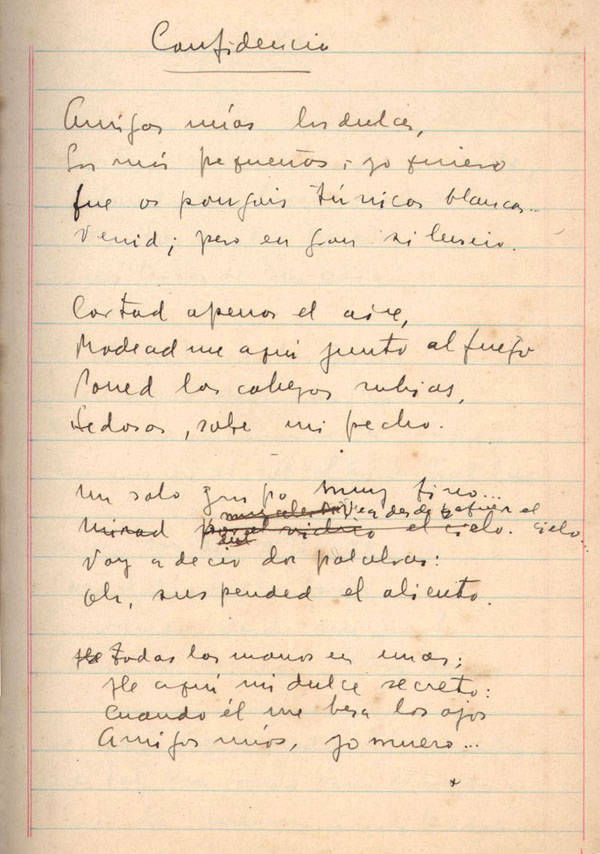 Confidencia
Amigas mías las dulces,
Las más pequeñas; yo quiero
Que os pongáis túnicas blancas..
Venid; pero en gran silencio.
Cortad apenas el aire,
Rodeadme aquí junto al fuego
Poned las cabezas rubias,
Sedosas, sobre mi pecho.
Un solo grupo muy fino...
Mirad el cielo. cielo...
Voy a decir dos palabras:
Oh, suspended el aliento.
He todas las manos en unas;
He aquí mi dulce secreto:
Cuando él me besa los ojos
Amigas mías, yo muero...